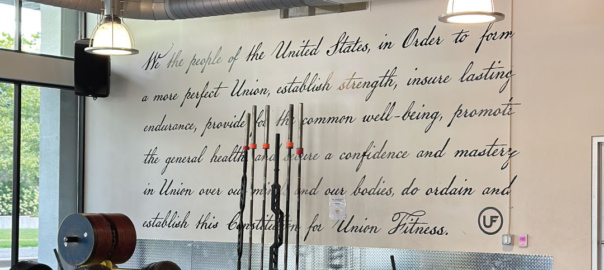 We the people of the United States, in Order to form
a more perfect Union, establish strength, insure lasting
endurance, provide for the common well-being, promote
the general health and secure a confidence and mastery
in Union over our minds and our bodies, do ordain and
establish this Constitution for Union Fitness.
UF